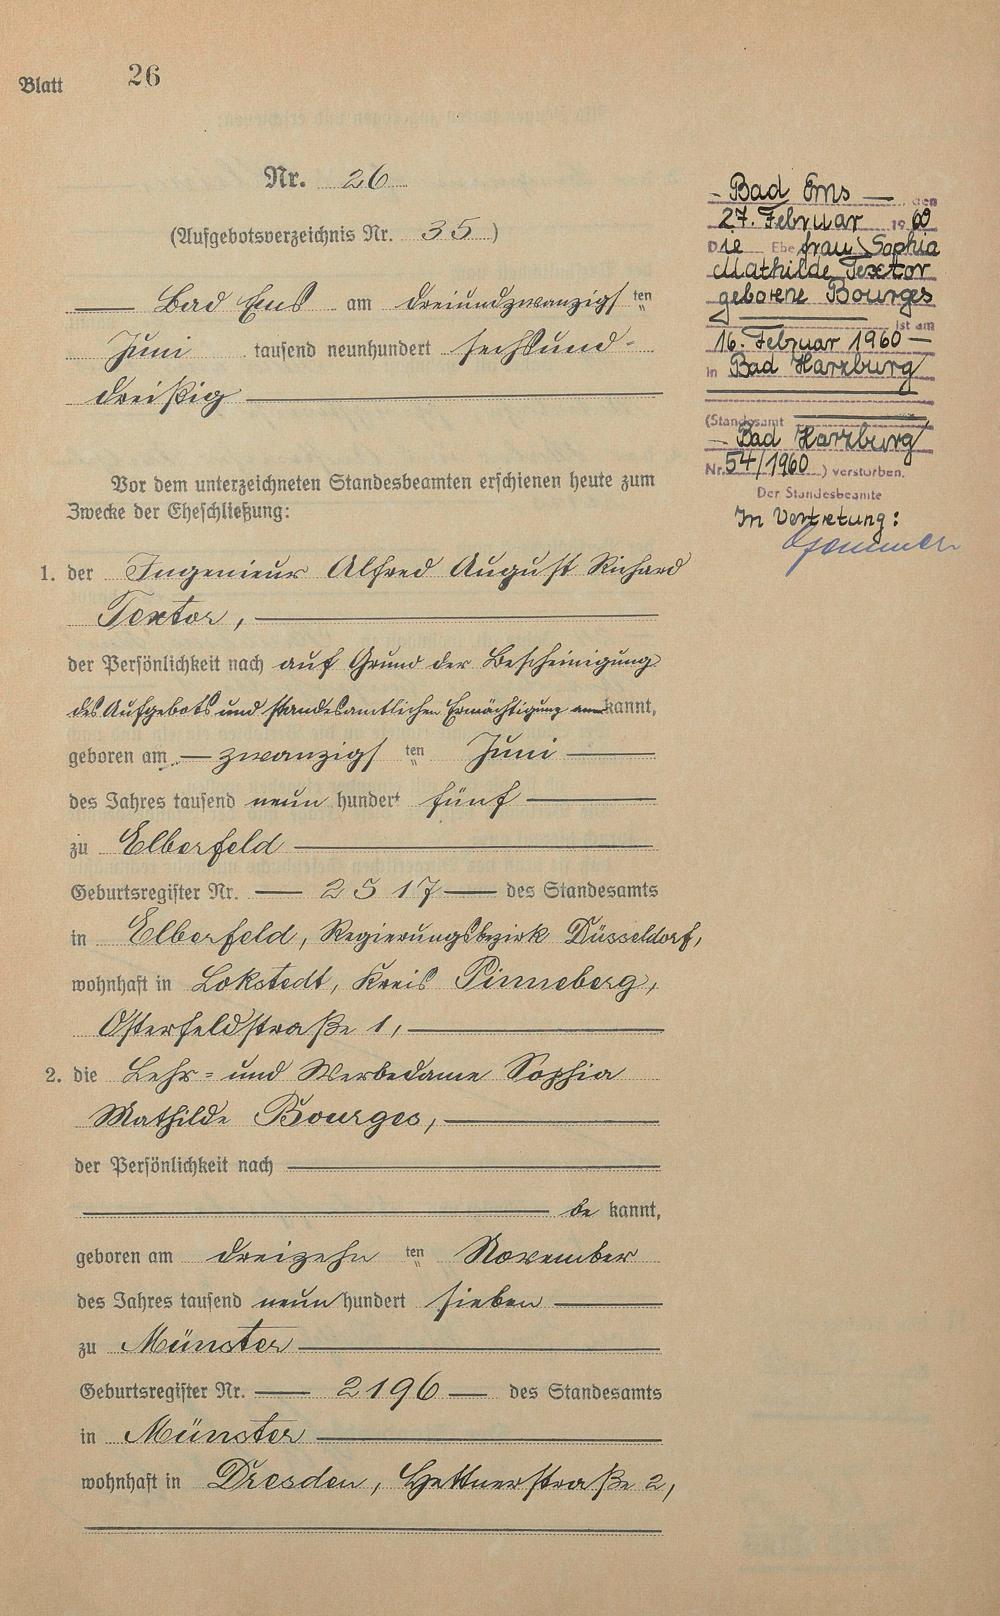 Blatt 26
Nr. 26
(Aufgebotsverzeichnis Nr. 35)
Bad Ems am dreiundzwanzigsten
Juni tausend neunhundert sechsund-
dreißig
Vor dem unterzeichneten Standesbeamten erschienen heute zum
Zwecke der Eheschließung:
1. der Ingenieur Alfred August Richard
Textor,
der Persönlichkeit nach auf Grund der Bescheinigung
des Aufgebots und standesamtlichen Ermächtigung kannt,
geboren am zwanzigsten Juni
des Jahres tausend neun hundert fünf
zu Elberfeld
Geburtsregister Nr. 2517 des Standesamts
in Elberfeld, Regierungsbezirk Düsseldorf,
wohnhaft in Lokstedt, Kreis Pinneberg,
Osterfeldstraße 1,
2. die Lehr- und Werbedame Sophia
Mathilde Bourges,
der Persönlichkeit nach
be kannt,
geboren am dreizehnten November
des Jahres tausend neun hundert sieben
zu Münster
Geburtsregister Nr. 2196 des Standesamts
in Münster
wohnhaft in Dresden, Hettnerstraße 2,
Bad Ems, den
27. Februar 1960
Die Ehefrau Sophia
Mathilde Textor
geborene Bourges
ist am
16. Februar 1960
in Bad Harzburg
(Standesamt
Bad Harzburg
Nr. 54/1960) verstorben.
Der Standesbeamte
In Vertretung: